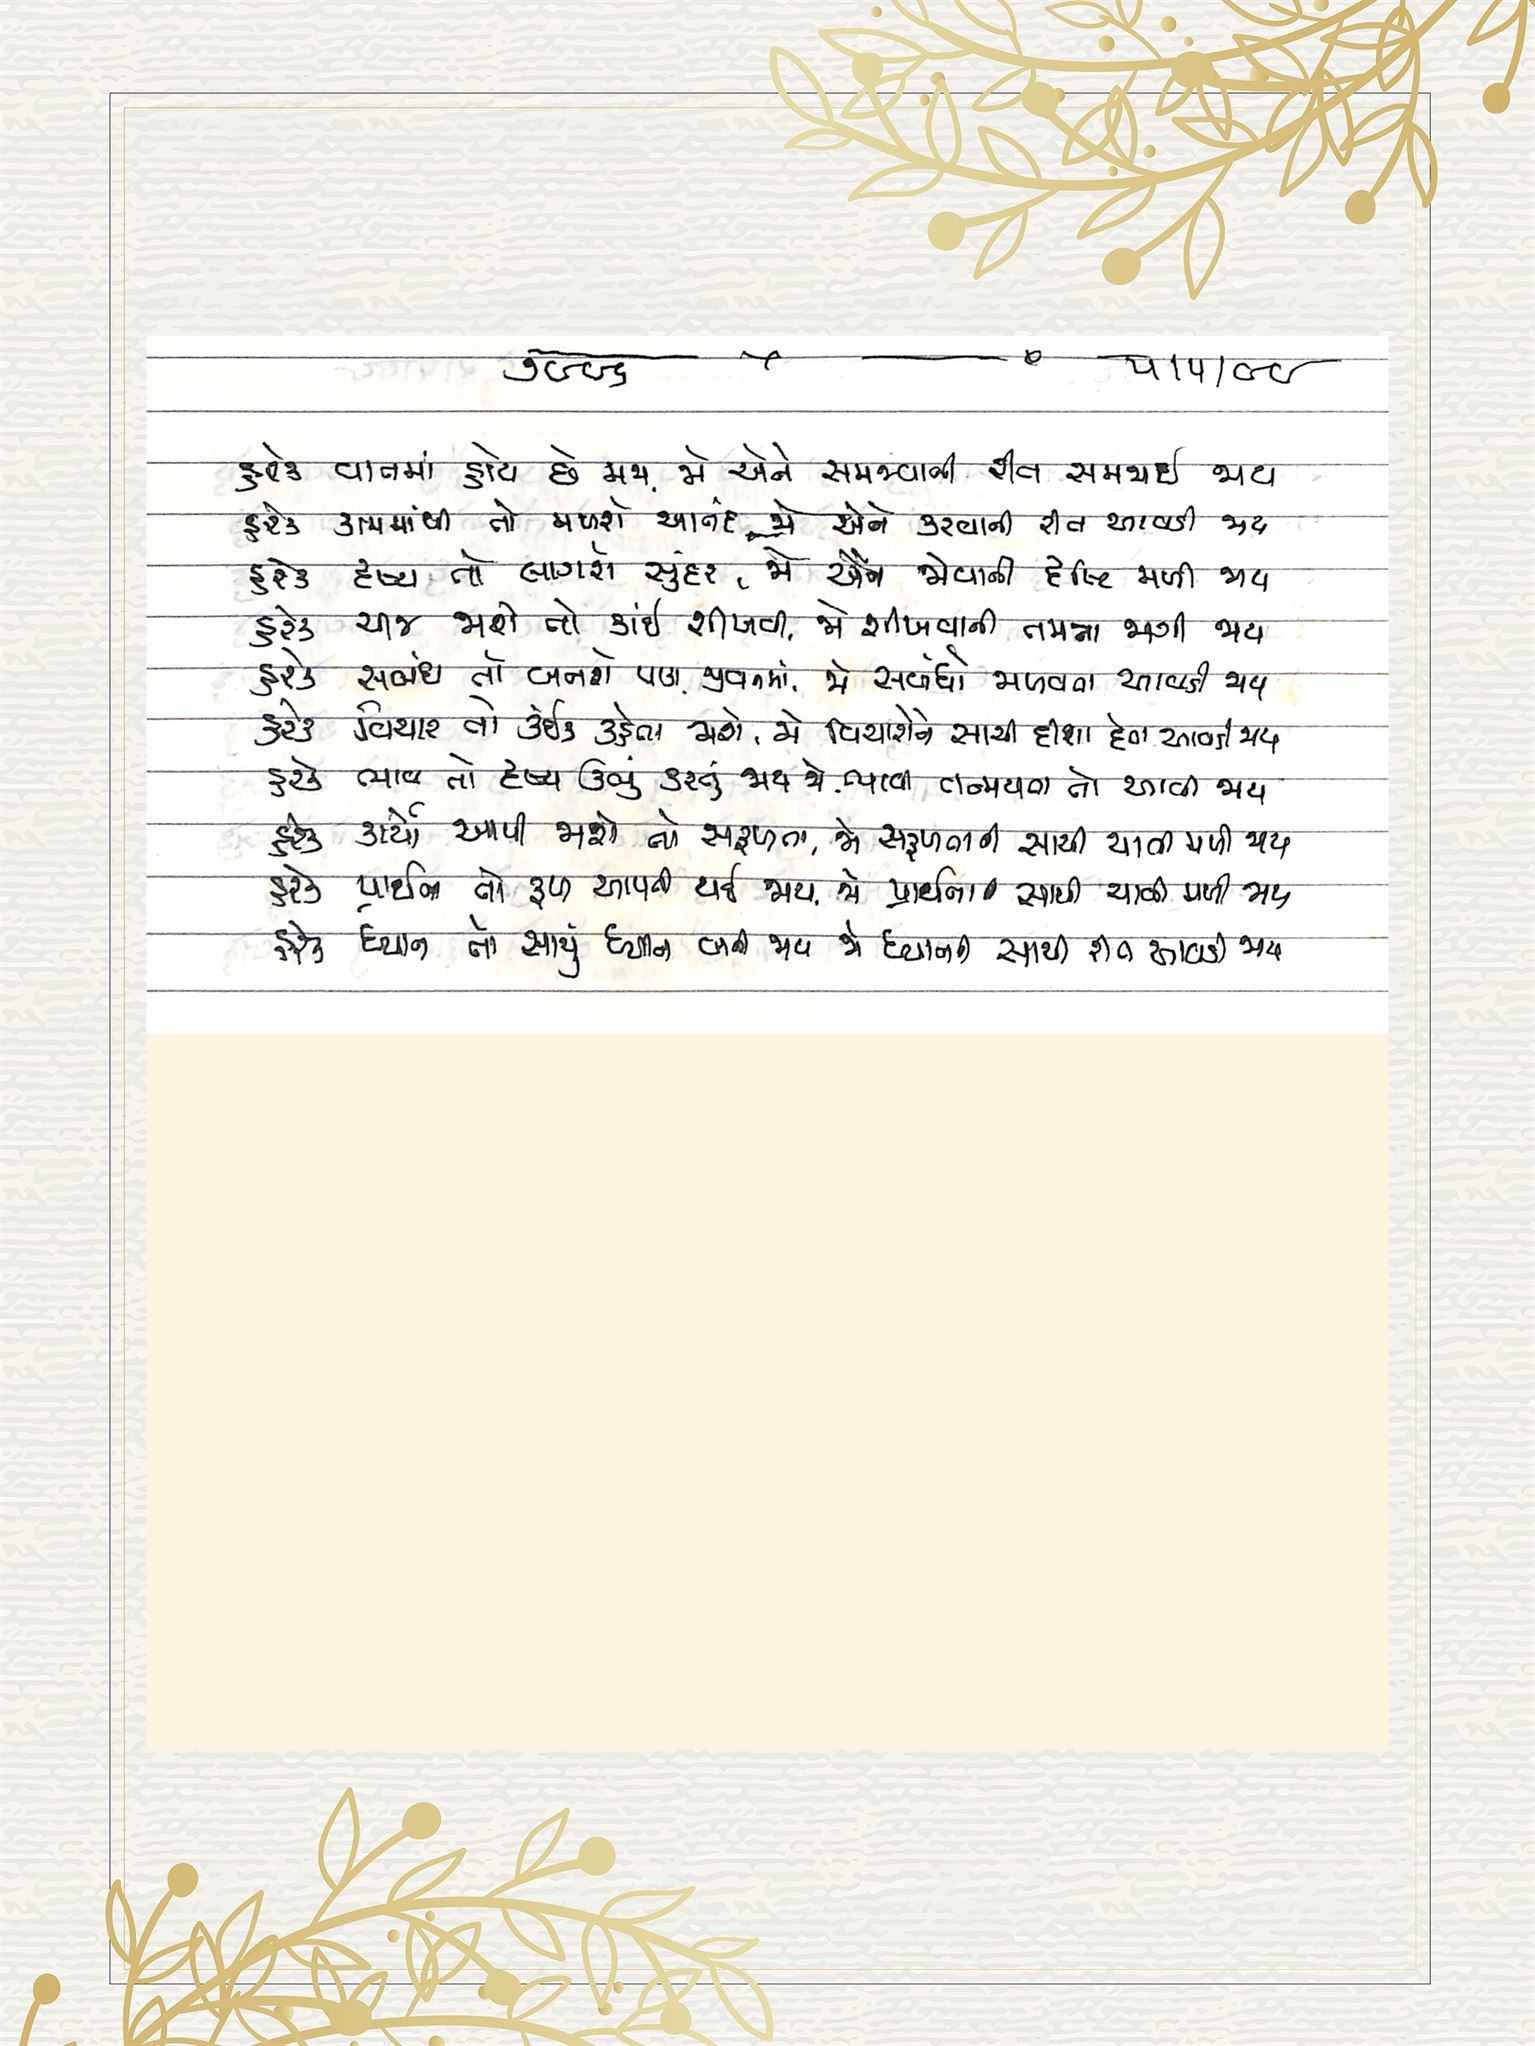 ૭૯૯૬ ૫/૫/૯૮
હરેક વાતમાં હોય છે મય, જો એને સમજવાની રીત સમજાઈ જાય
હરેક કામમાંથી તો મળશે આનંદ, જો એને કરવાની રીત આવડી જાય
હરેક દૃષ્ય તો લાગશે સુંદર, જો એને જોવાની દૃષ્ટિ મળી જાય
હરેક ચીજ જાશે તો કાંઈ શીખવી, જો શીખવાની તમન્ના જાગી જાય
હરેક સબંધ તો બનશે પણ જીવનમાં, જો સબંધો જાળવતા આવડી જાય
હરેક વિચાર તો કંઈક કહેતા જાશે, જો વિચારોને સાચી દીશા દેતા આવડી જાય
હરેક ભાવ તો દૃષ્ય ઊભું કરતું જાય જો ભાવની તન્મયતા તો આવી જાય
હરેક કાર્યો આપી જાશે તો સફળતા, જો સફળતાની સાચી ચાવી મળી જાય
હરેક પ્રાર્થના તો ફળ આપતી થઈ જાય, જો પ્રાર્થનાની સાચી ચાવી મળી જાય
હરેક ધ્યાન તો સાચું ધ્યાન બની જાય જો ધ્યાનની સાચી રીત આવડી જાય